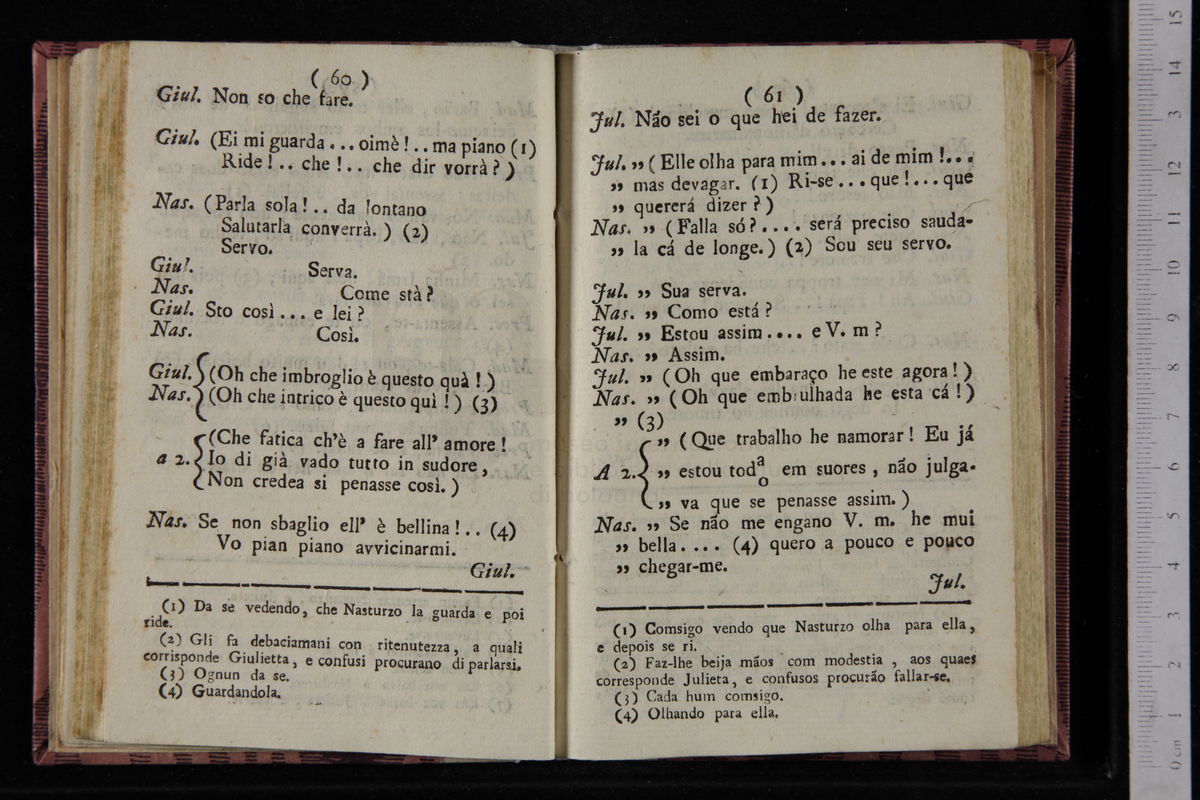 ( 60 )
Giul. Non so che fare.
Giul. (Ei mi guarda ... oimè ! .. ma piano (1)
Ride ! .. che ! .. che dir vorrà ? )
Nas. (Parla sola ! .. da lontano
Salutarla converrà. ) (2)
Servo.
Giul. Serva.
Nas. Come stà ?
Giul. Sto così ... e lei ?
Nas. Così.
Giul. (Oh che imbroglio è questo quà ! )
Nas. (Oh che intrico è questo quì ! ) (3)
(Che fatica ch'è a fare all' amore !
a 2. Io di già vado tutto in sudore ,
Non credea si penasse così. )
Nas. Se non sbaglio ell' è bellina ! .. (4)
Vo pian piano avvicinarmi.
Giul.
(1) Da se vedendo, che Nasturzo la guarda e poi
ride.
(2) Gli fa debaciamani con ritenutezza, a quali
corrisponde Giulietta, e confusi procurano di parlarsi.
(3) Ognun da se.
(4) Guardandola.
( 61 )
Jul. Não sei o que hei de fazer.
Jul. ,, ( Elle olha para mim ... ai de mim ! ...
,, mas devagar. (1) Ri-se ... que ! ... que
,, quererá dizer ? )
Nas. ,, (Falla só ? .... será preciso sauda-
,, la cá de longe. ) (2) Sou seu servo.
Jul. ,, Sua serva.
Nas. ,, Como está ?
Jul. ,, Estou assim .... e V. m ?
Nas. ,, Assim.
Jul. ,, (Oh que embaraço he este agora ! )
Nas. ,, (Oh que embrulhada he esta cá ! )
,, (3)
,, (Que trabalho he namorar ! Eu já
A 2. ,, estou tod a o em suores , não julga-
,, va que se penasse assim. )
Nas. ,, Se não me engano V. m. he mui
,, bella. ... (4) quero a pouco e pouco
,, chegar-me.
Jul.
(1) Comsigo vendo que Nasturzo olha para ella,
e depois se ri.
(2) Faz-lhe beija mãos com modestia , aos quaes
corresponde Julieta, e confusos procurão fallar-se.
(3) Cada hum comsigo.
(4) Olhando para ella.
0 cm 1 2 3 4 5 6 7 8 9 10 11 12 13 14 15